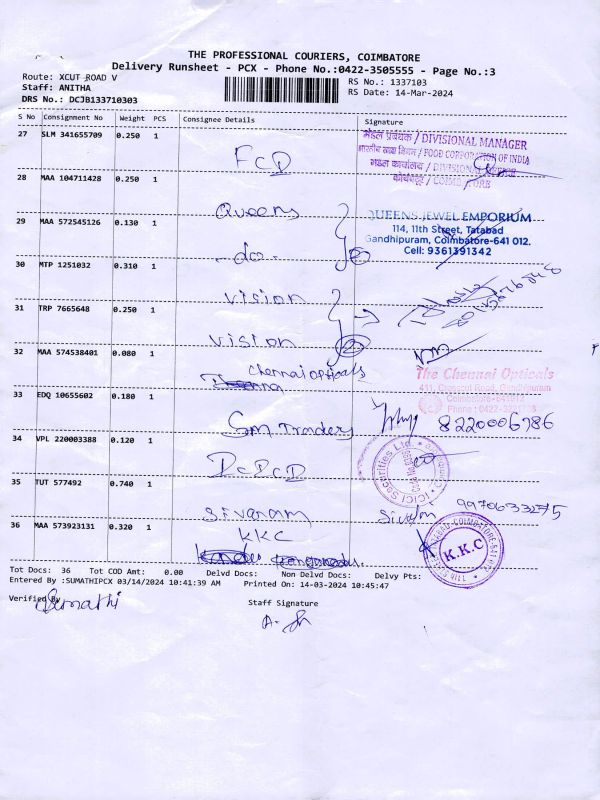 THE PROFESSIONAL COURIERS, COIMBATORE
Delivery Runsheet - PCX - Phone No.:0422-3505555 - Page No.:3
Route: XCUT ROAD V
RS No.: 1337103
Staff: ANITHA
RS Date: 14-Mar-2024
DRS No.: DCJB133710303
S No Consignment No Weight PCS Consignee Details Signature
27 SLM 341655709 0.250 1 FCD
मंडल प्रबंधक / DIVISIONAL MANAGER
भारतीय खाद्य निगम / FOOD CORPORATION OF INDIA
मंडल कार्यालय / DIVISIONAL OFFICE
कोयंबतूर / COIMBATORE
28 MAA 104711428 0.250 1 Queens
QUEENS JEWEL EMPORIUM
114, 11th Street, Tatabad
Gandhipuram, Coimbatore-641 012.
Cell: 9361391342
29 MAA 572545126 0.130 1 -do-
30 MTP 1251032 0.310 1 Vision
31 TRP 7665648 0.250 1 Vision
32 MAA 574538401 0.080 1 Chennai opticals
The Chennai Opticals
411, Crosscut Road, Gandhipuram
Coimbatore-641012
33 EDQ 10655602 0.180 1 Sm Traders 8220006786
34 VPL 220003388 0.120 1 DCDCD
ICICI Securities Ltd.
35 TUT 577492 0.740 1 Sivaram 9970633275
36 MAA 573923131 0.320 1 KKC
K.K.C
Tot Docs: 36 Tot COD Amt: 0.00 Delvd Docs: Non Delvd Docs: Delvy Pts:
Entered By :SUMATHIPCX 03/14/2024 10:41:39 AM Printed On: 14-03-2024 10:45:47
Verified By Sumathi
Staff Signature